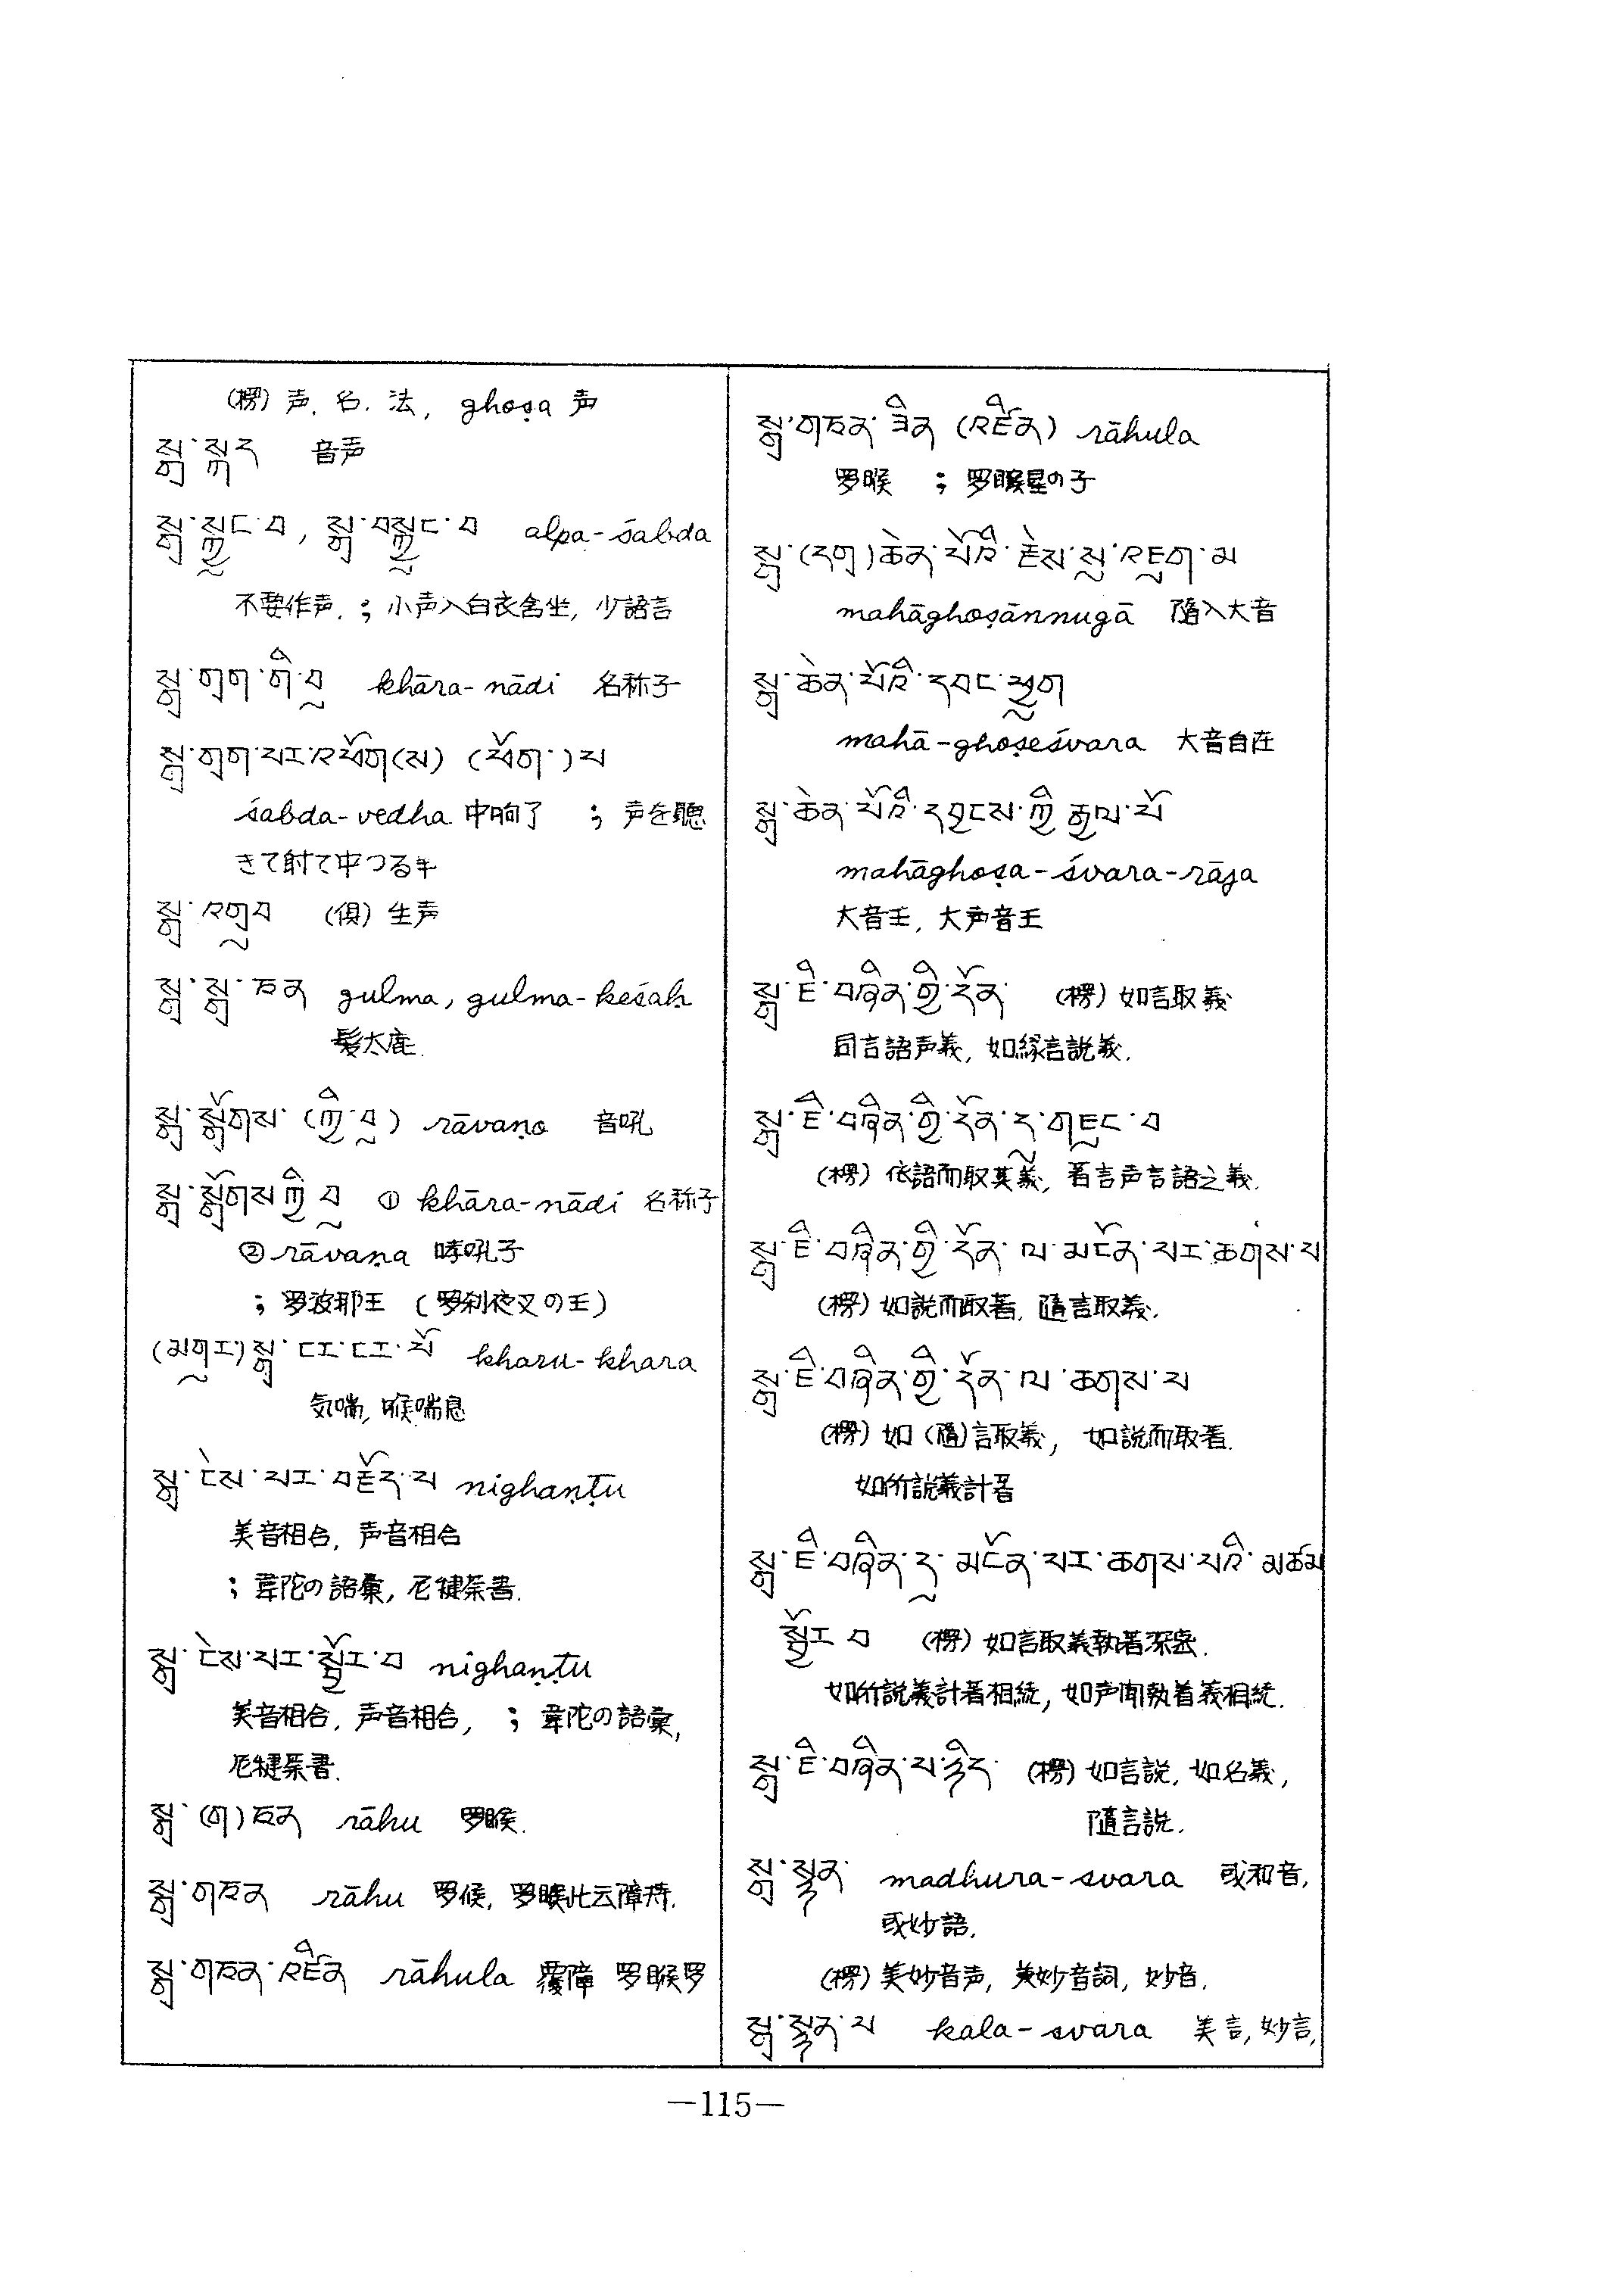 (楞) 声, 名, 法, ghoṣa 声
སྒྲ་སྐད 音声
སྒྲ་སྐྱུང་བ, སྒྲ་བསྐྱུང་བ alpa-śabda
不要作声, ; 小声入白衣舎坐, 少語言
སྒྲ་གྲག་གི་བུ khāra-nādi 名称子
སྒྲ་གྲག་པར་འཕོག(ས) (ཕོག་)པ
śabda-vedha 中胸了 ; 声を聴
きて射て中つる手
སྒྲ་འགྲུབ (倶) 生声
སྒྲ་སྒྲ་ཅན gulma, gulma-keśaḥ
髪太麁.
སྒྲ་སྒྲོགས་(ཀྱི་བུ) rāvaṇa 音吼
སྒྲ་སྒྲོགས་ཀྱི་བུ ① khāra-nādi 名称子
② rāvaṇa 哮吼子
; 罗波那王 (罗刹夜叉の王)
(མགུར)སྒྲ་ངར་ངར་པོ kharu-khara
気喘, 喉喘息
སྒྲ་ངེས་པར་བརྗོད་པ nighaṇṭu
美音相合, 声音相合
; 韋陀の語彙, 尼犍荼書.
སྒྲ་ངེས་པར་སྦྱོར་བ nighaṇṭu
美音相合, 声音相合, ; 韋陀の語彙,
尼犍荼書.
སྒྲ་(ག)ཅན rāhu 罗睺.
སྒྲ་གཅན rāhu 罗候, 罗睺此云障持.
སྒྲ་གཅན་འཛིན rāhula 覆障 罗睺罗
སྒྲ་གཅན་ཟིན (འཛིན) rāhula
罗睺 ; 罗睺星の子
སྒྲ་(དག)ཆེན་པོའི་རྗེས་སུ་འཇུག་མ
mahāghoṣānnugā 隨入大音
སྒྲ་ཆེན་པོའི་དབང་ཕྱུག
mahā-ghoṣeśvara 大音自在
སྒྲ་ཆེན་པོའི་དབྱངས་ཀྱི་རྒྱལ་པོ
mahāghoṣa-śvara-rāja
大音王, 大声音王
སྒྲ་ཇི་བཞིན་གྱི་དོན་ (楞) 如言取義
同言語声義, 如縁言説義.
སྒྲ་ཇི་བཞིན་གྱི་དོན་དུ་གཟུང་བ
(楞) 依語而取其義, 着言声言語之義.
སྒྲ་ཇི་བཞིན་གྱི་དོན་ལ་མངོན་པར་ཆགས་པ
(楞) 如説而取著, 隨言取義.
སྒྲ་ཇི་བཞིན་གྱི་དོན་ལ་ཆགས་པ
(楞) 如 (隨) 言取義, 如説而取着.
如所説義計著
སྒྲ་ཇི་བཞིན་དུ་མངོན་པར་ཆགས་པའི་མཚམ
སྦྱོར་བ (楞) 如言取義執著深密.
如所説義計著相続, 如声聞執着義相続.
སྒྲ་ཇི་བཞིན་པ་ཉིད (楞) 如言説, 如名義,
隨言説.
སྒྲ་སྙན་ madhura-svara 或和音,
或妙語.
(楞) 美妙音声, 美妙音詞, 妙音.
སྒྲ་སྙན་པ kala-svara 美言, 妙言,
—115—